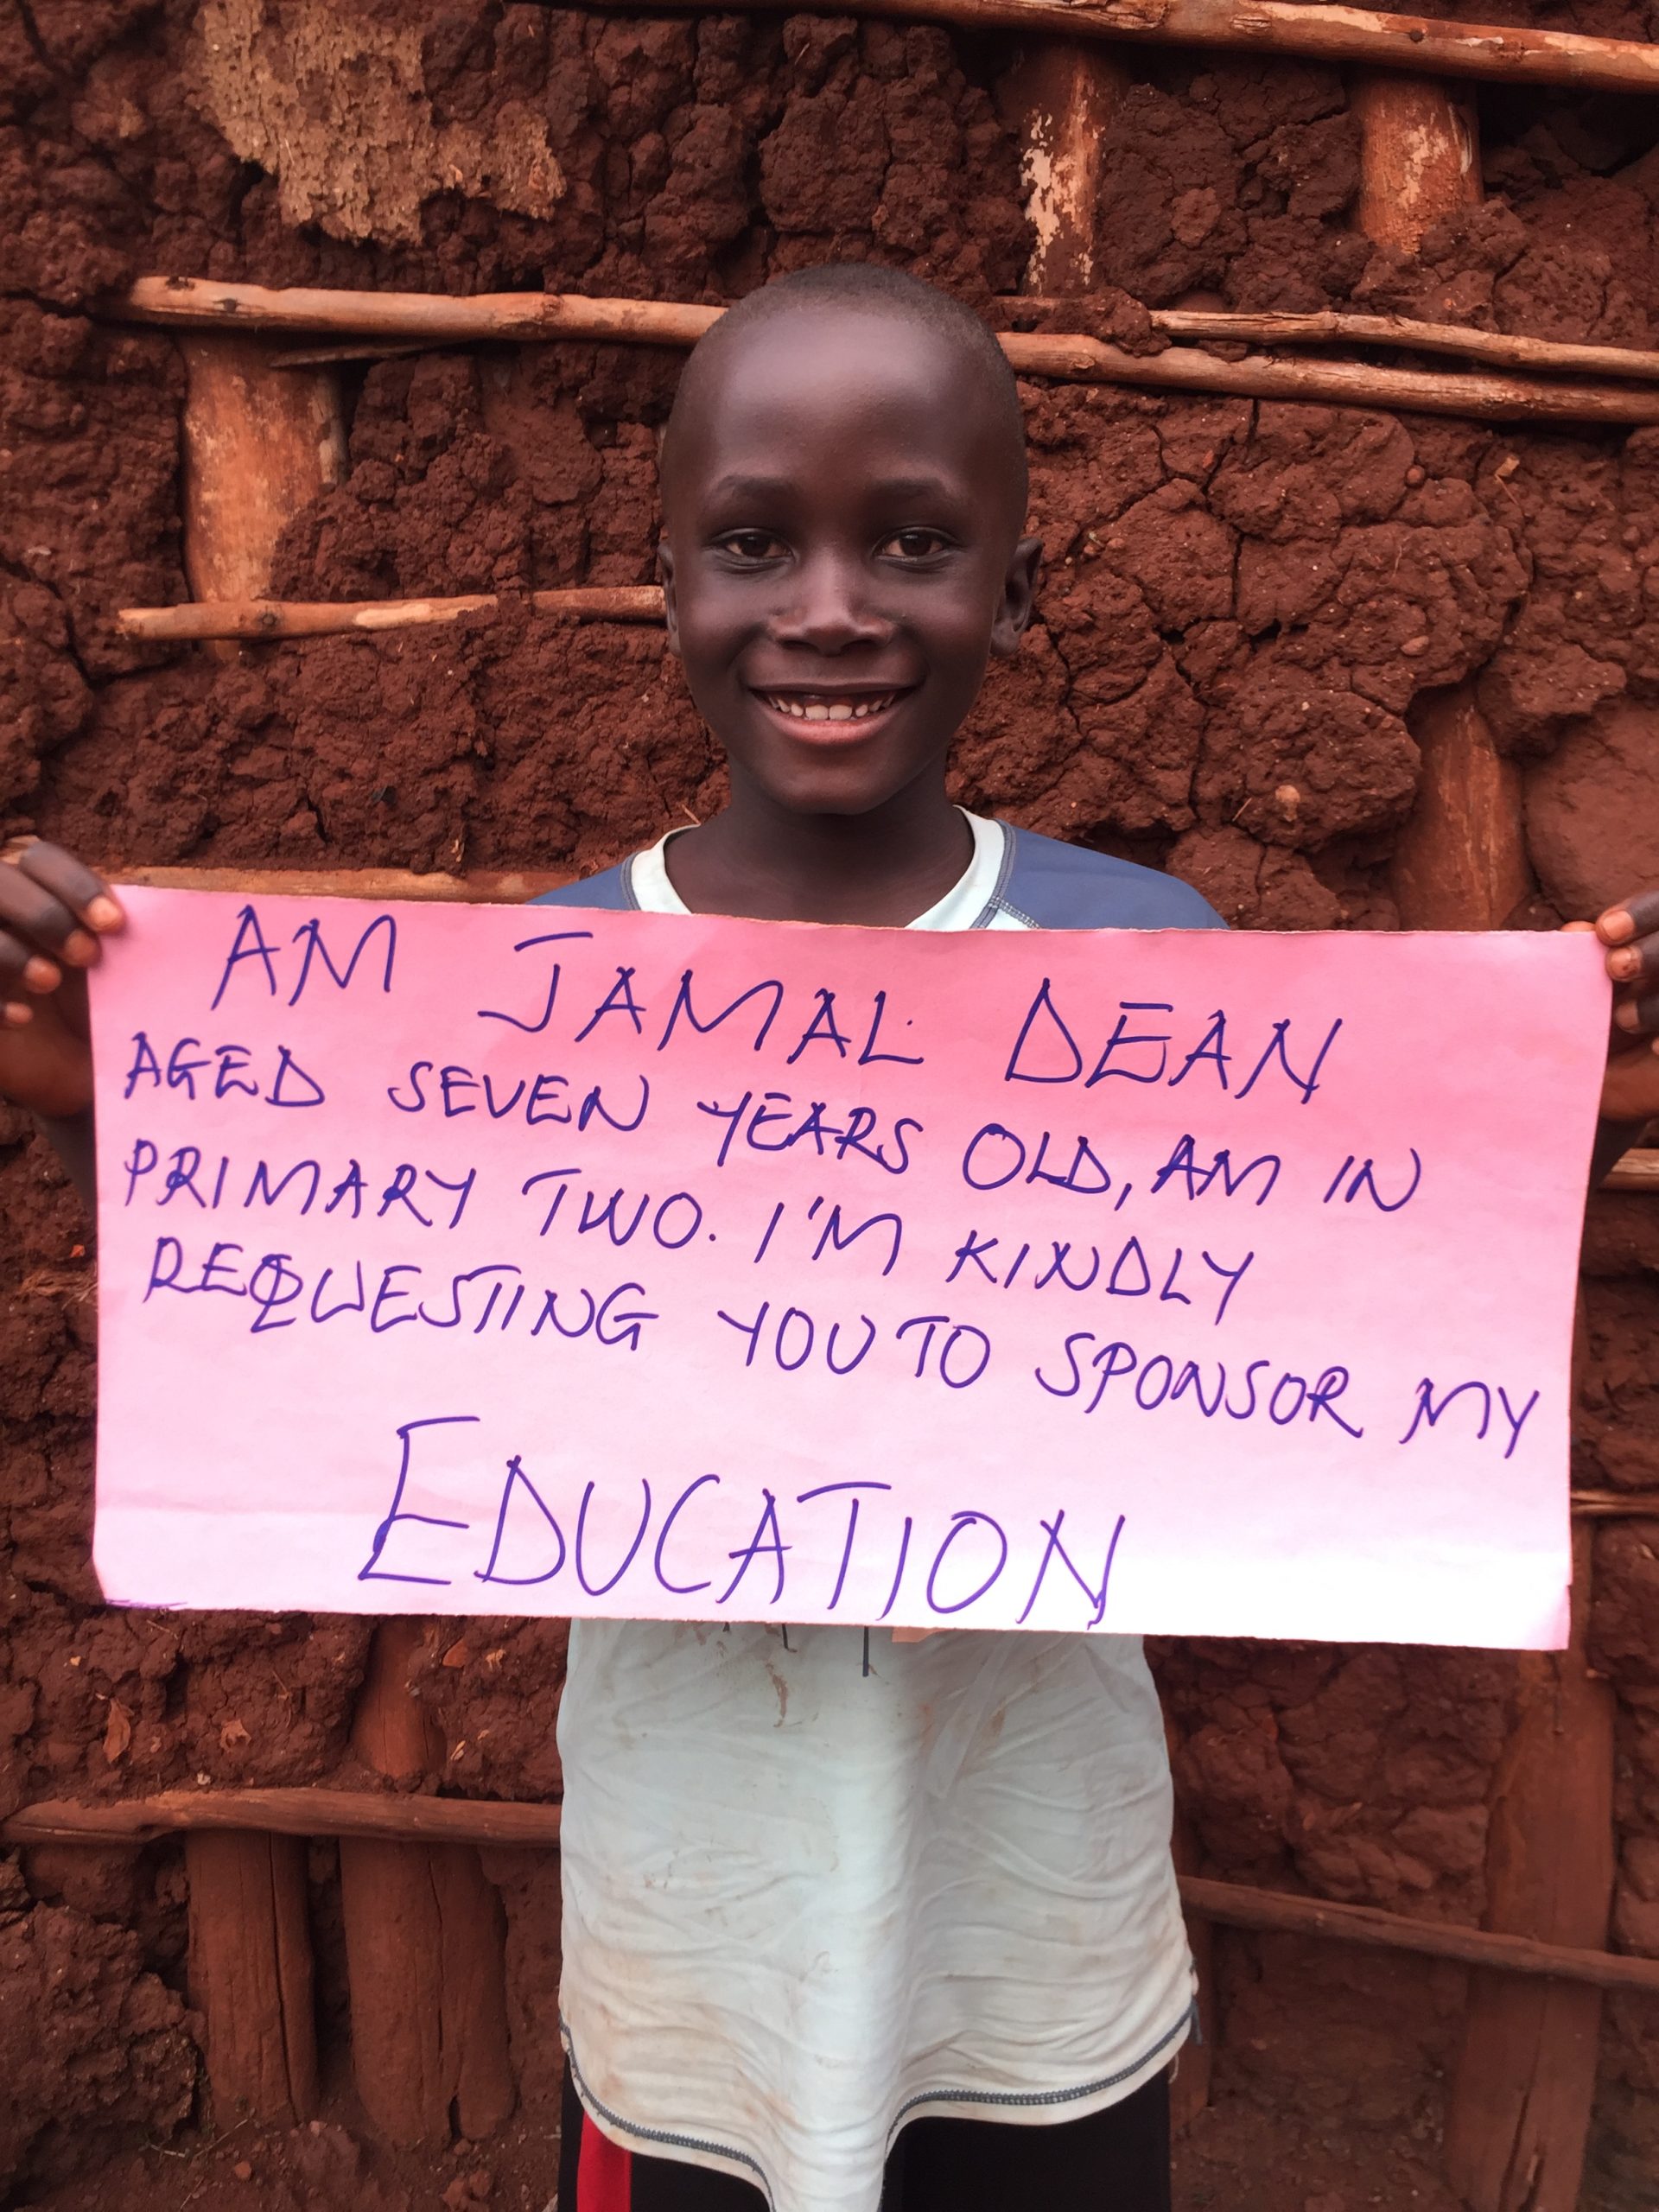 AM JAMAL DEAN
AGED SEVEN YEARS OLD, AM IN
PRIMARY TWO. I'M KINDLY
REQUESTING YOU TO SPONSOR MY
EDUCATION